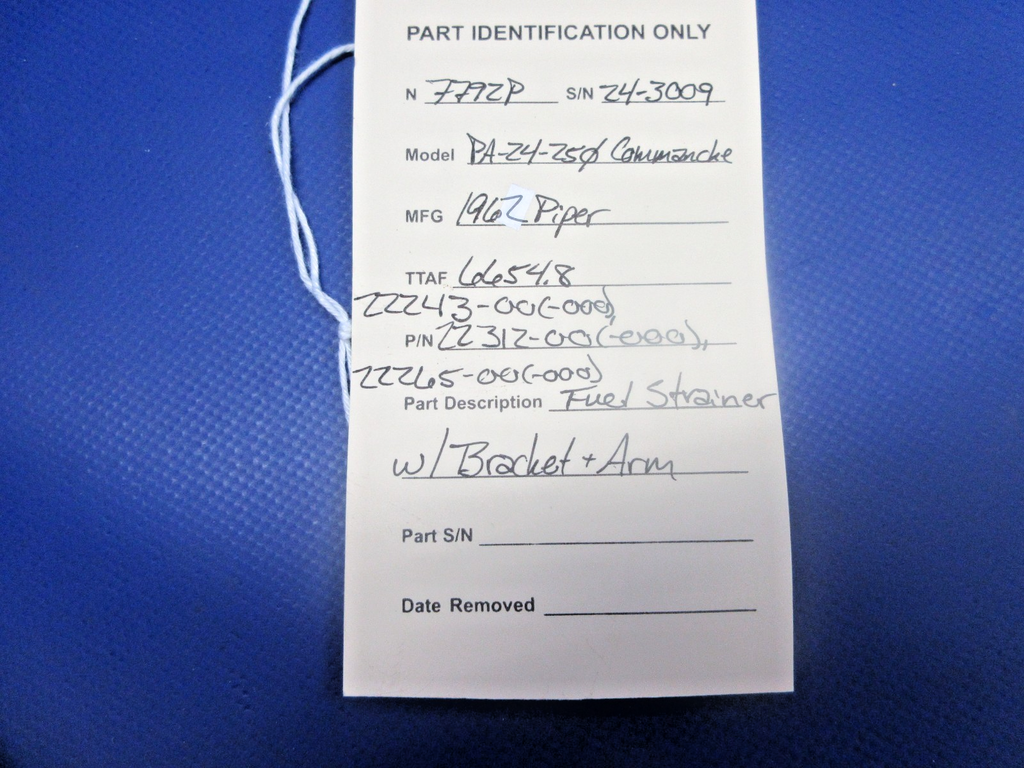 PART IDENTIFICATION ONLY
N 7792P S/N 24-3009
Model PA-24-25ø Commanche
MFG 1962 Piper
TTAF 6654.8
22243-00(-000),
P/N 22312-00(-000),
22265-00(-000)
Part Description Fuel Strainer
w/ Bracket + Arm
Part S/N
Date Removed